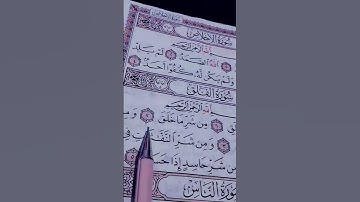 سُورَةُ الإِخْلَاصِ
ٱللَّهِ ٱلرَّحْمَٰنِ ٱلرَّحِيمِ
ٱللَّهُ ٱلصَّمَدُ ۝ لَمْ يَلِدْ
وَلَمْ يَكُن لَّهُۥ كُفُوًا أَحَدٌۢ
سُورَةُ الْفَلَقِ
ٱللَّهِ ٱلرَّحْمَٰنِ ٱلرَّحِيمِ
مِن شَرِّ مَا خَلَقَ ۝ وَمِن
وَمِن شَرِّ ٱلنَّفَّٰثَٰتِ فِى
شَرِّ حَاسِدٍ إِذَا حَسَدَ
سُورَةُ النَّاسِ